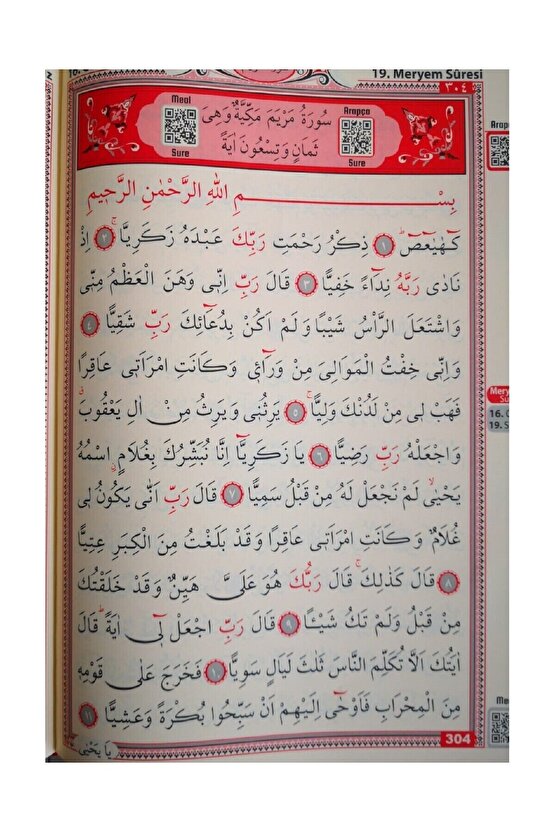 19. Meryem Sûresi
٣٠٤
Meal
Sure
سُورَةُ مَرْيَمَ مَكِّيَّةٌ وَهِىَ
ثَمَانٍ وَتِسْعُونَ اٰيَةً
Arapça
Sure
بِسْمِ اللّٰهِ الرَّحْمٰنِ الرَّحِيمِ
كٓهٰيٰعٓصٓ ١ ذِكْرُ رَحْمَتِ رَبِّكَ عَبْدَهُ زَكَرِيَّاۚ ٢ اِذْ
نَادٰى رَبَّهُ نِدَٓاءً خَفِيًّا ٣ قَالَ رَبِّ اِنّ۪ى وَهَنَ الْعَظْمُ مِنّ۪ى
وَاشْتَعَلَ الرَّأْسُ شَيْبًا وَلَمْ اَكُنْ بِدُعَٓائِكَ رَبِّ شَقِيًّا ٤
وَاِنّ۪ى خِفْتُ الْمَوَالِىَ مِنْ وَرَٓاء۪ى وَكَانَتِ امْرَاَت۪ى عَاقِرًا
فَهَبْ ل۪ى مِنْ لَدُنْكَ وَلِيًّاۙ ٥ يَرِثُن۪ى وَيَرِثُ مِنْ اٰلِ يَعْقُوبَۗ
وَاجْعَلْهُ رَبِّ رَضِيًّا ٦ يَا زَكَرِيَّٓا اِنَّا نُبَشِّرُكَ بِغُلَامٍۨ اسْمُهُ
يَحْيٰىۙ لَمْ نَجْعَلْ لَهُ مِنْ قَبْلُ سَمِيًّا ٧ قَالَ رَبِّ اَنّٰى يَكُونُ ل۪ى
غُلَامٌ وَكَانَتِ امْرَاَت۪ى عَاقِرًا وَقَدْ بَلَغْتُ مِنَ الْكِبَرِ عِتِيًّا
٨ قَالَ كَذٰلِكَۚ قَالَ رَبُّكَ هُوَ عَلَىَّ هَيِّنٌ وَقَدْ خَلَقْتُكَ
مِنْ قَبْلُ وَلَمْ تَكُ شَيْـًٔا ٩ قَالَ رَبِّ اجْعَلْ ل۪ٓى اٰيَةًۜ قَالَ
اٰيَتُكَ اَلَّا تُكَلِّمَ النَّاسَ ثَلٰثَ لَيَالٍ سَوِيًّا ١٠ فَخَرَجَ عَلٰى قَوْمِه۪
مِنَ الْمِحْرَابِ فَاَوْحٰٓى اِلَيْهِمْ اَنْ سَبِّحُوا بُكْرَةً وَعَشِيًّا ١١
304
يَا يَحْيٰى